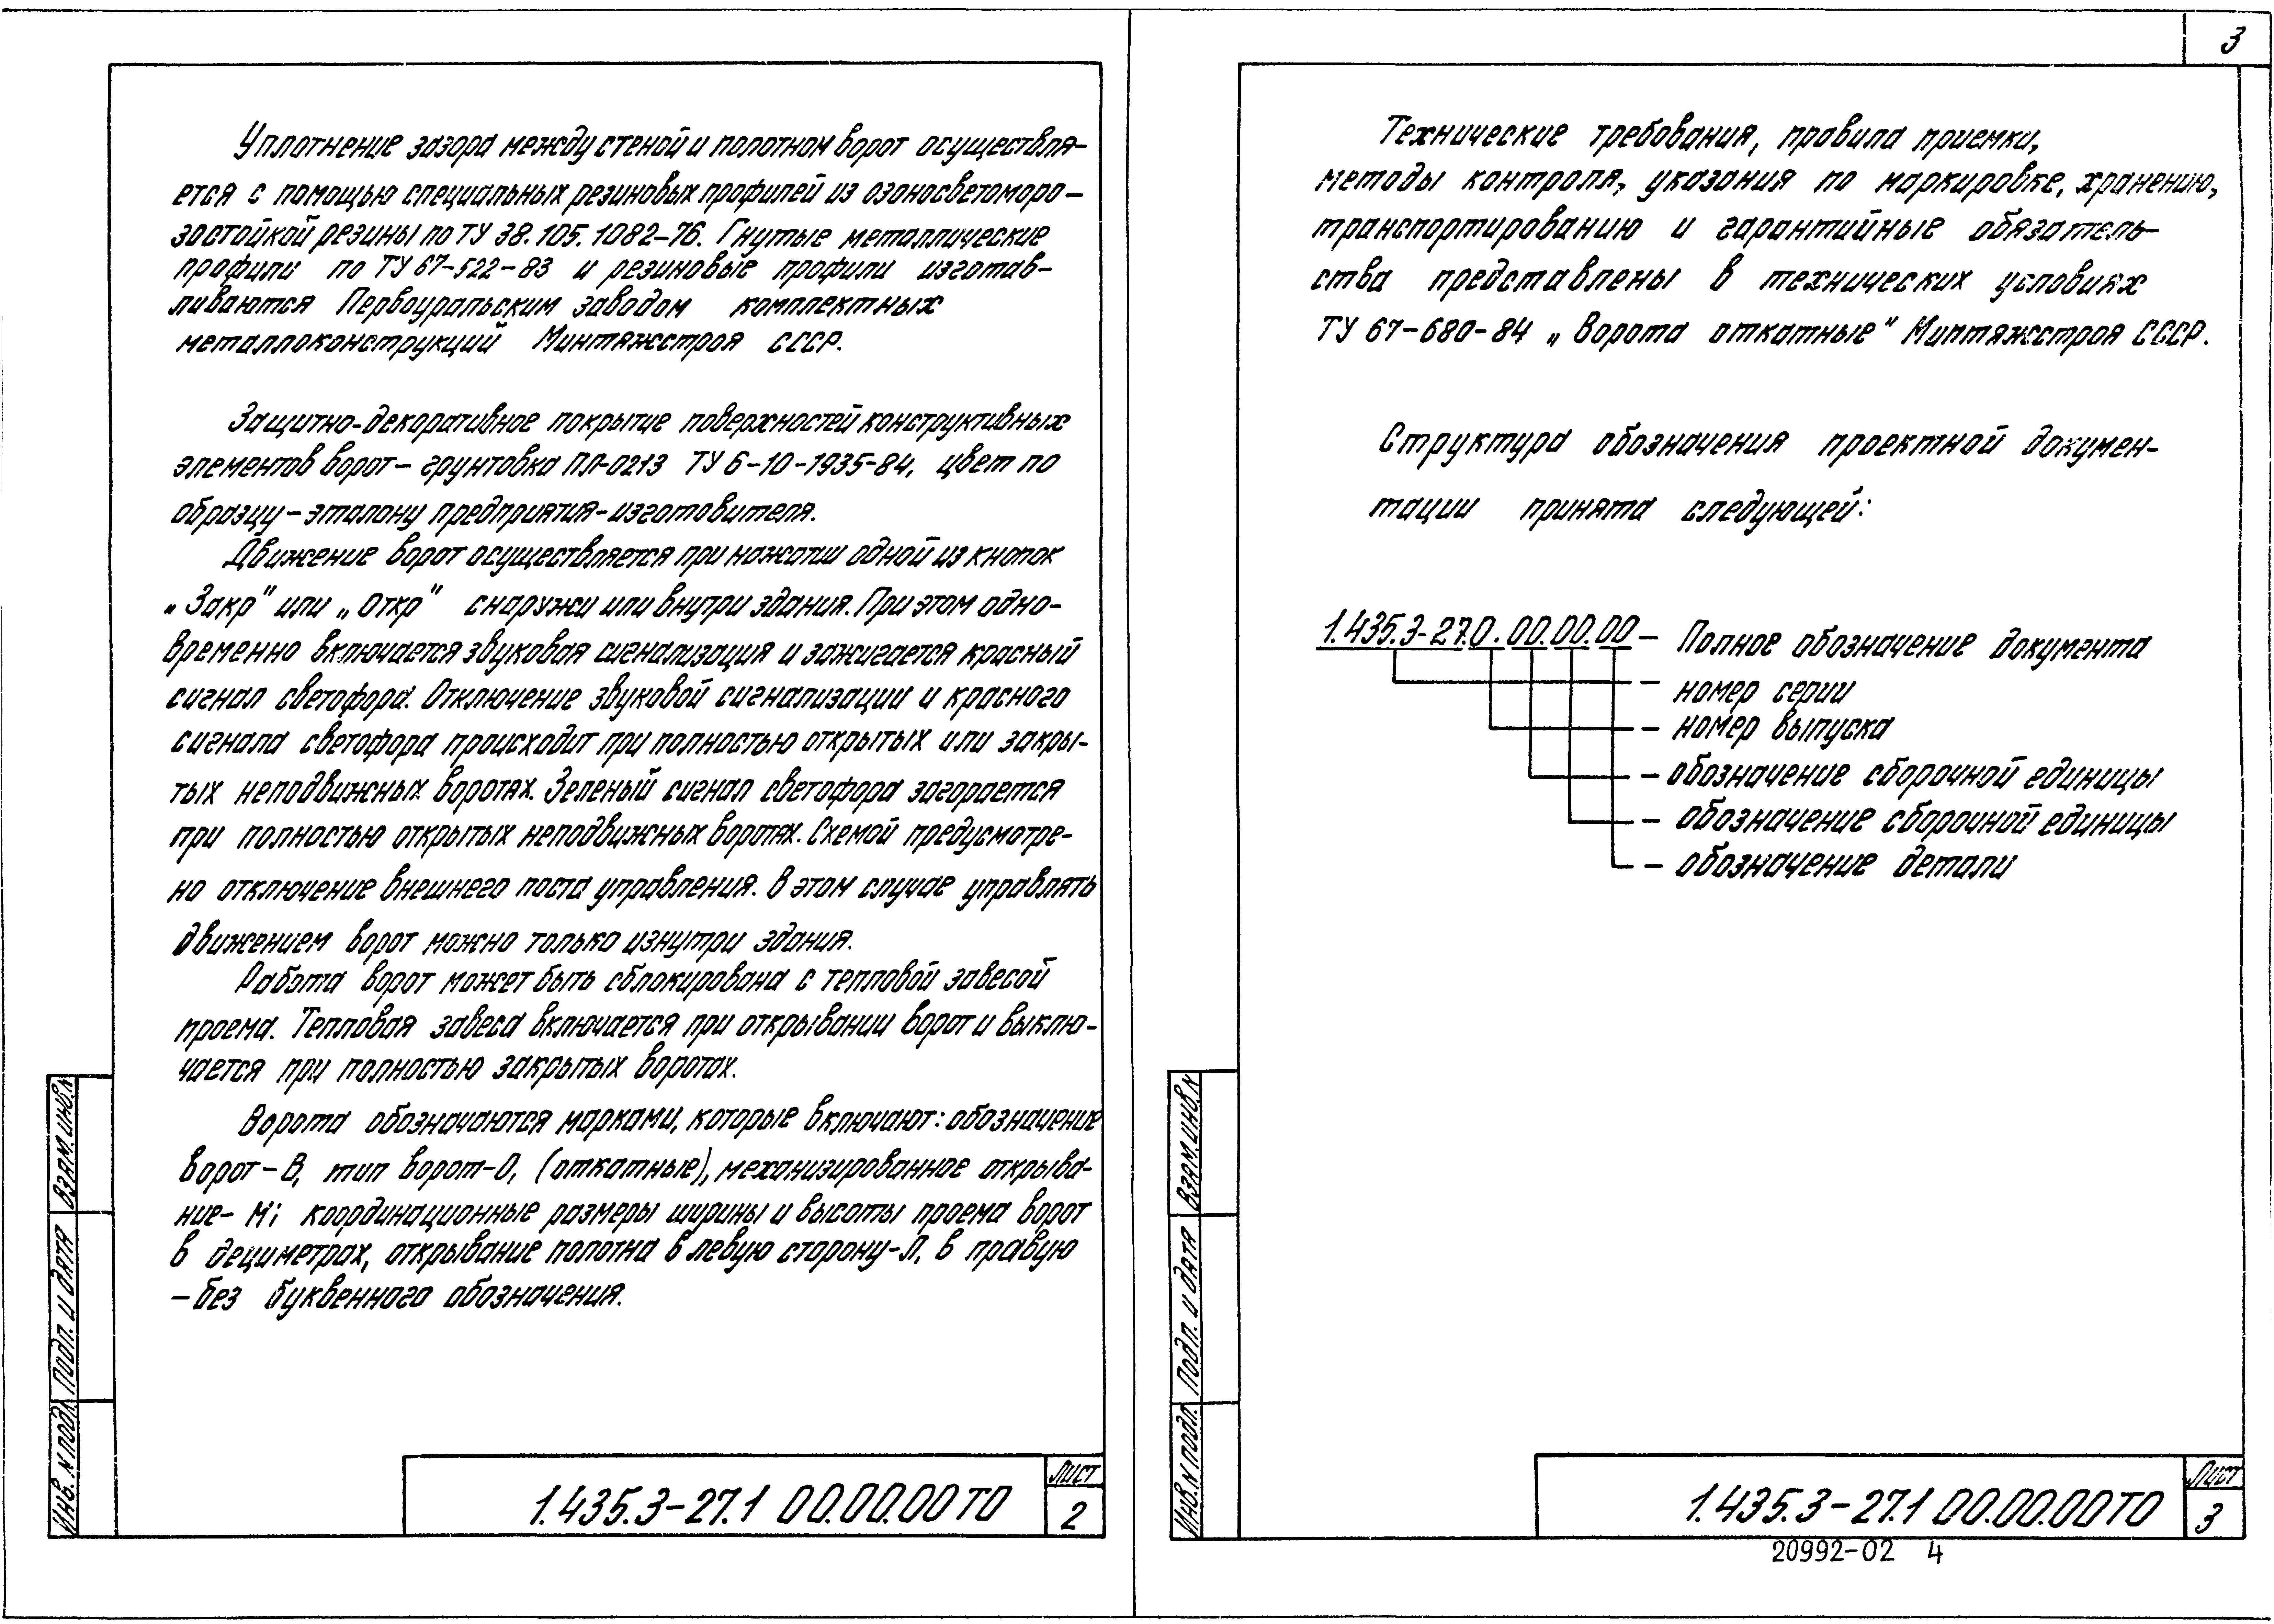 Уплотнение зазора между стеной и полотном ворот осуществля-
ется с помощью специальных резиновых профилей из озоносветоморо-
застойкой резины по ТУ 38.105.1082-76. Гнутые металлические
профили по ТУ 67-522-83 и резиновые профили изготав-
ливаются Первоуральским заводом комплектных
металлоконструкций Минтяжстроя СССР.
Защитно-декоративное покрытие поверхностей конструктивных
элементов ворот - грунтовка ПЛ-0213 ТУ 6-10-1935-84, цвет по
образцу-эталону предприятия-изготовителя.
Движение ворот осуществляется при нажатии одной из кнопок
„Закр" или „Откр" снаружи или внутри здания. При этом одно-
временно включается звуковая сигнализация и зажигается красный
сигнал светофора. Отключение звуковой сигнализации и красного
сигнала светофора происходит при полностью открытых или закры-
тых неподвижных воротах. Зеленый сигнал светофора загорается
при полностью открытых неподвижных вортях. Схемой предусмотре-
но отключение внешнего поста управления. В этом случае управлять
движением ворот можно только изнутри здания.
Работа ворот может быть сблокирована с тепловой завесой
проема. Тепловая завеса включается при открывании ворот и выклю-
чается при полностью закрытых воротах.
Ворота обозначаются марками, которые включают: обозначение
ворот-В, тип ворот-О, (откатные), механизированное открыва-
ние- М; координационные размеры ширины и высоты проема ворот
в дециметрах, открывание полотна в левую сторону-Л, в правую
-без буквенного обозначения.
Взам.инв.N
Подп. и дата
Инв. N подл.
1.435.3-27.1 00.00.00ТО
Лист
2
3
Технические требования, правила приемки,
методы контроля, указания по маркировке, хранению,
транспортированию и гарантийные обязатель-
ства представлены в технических условиях
ТУ 67-680-84 „Ворота откатные" Минтяжстроя СССР.
Структура обозначения проектной докумен-
тации принята следующей:
1.435.3-27.0.00.00.00 - Полное обозначение документа
- номер серии
- номер выпуска
- обозначение сборочной единицы
- обозначение сборочной единицы
- обозначение детали
Взам.инв.N
Подп. и дата
Инв.N подл.
1.435.3-27.1 00.00.00ТО
Лист
3
20992-02 4